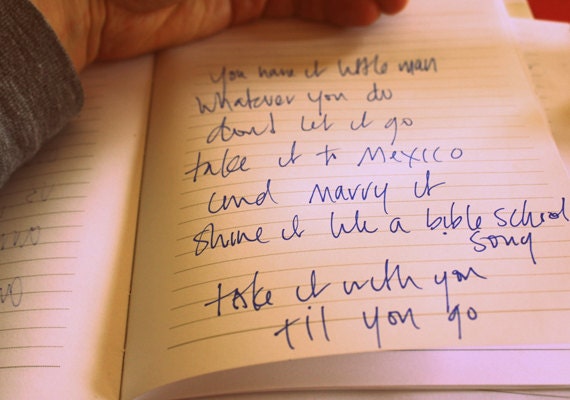 you have it little man
whatever you do
don't let it go
take it to Mexico
and marry it
shine it like a bible school
song
take it with you
til you go